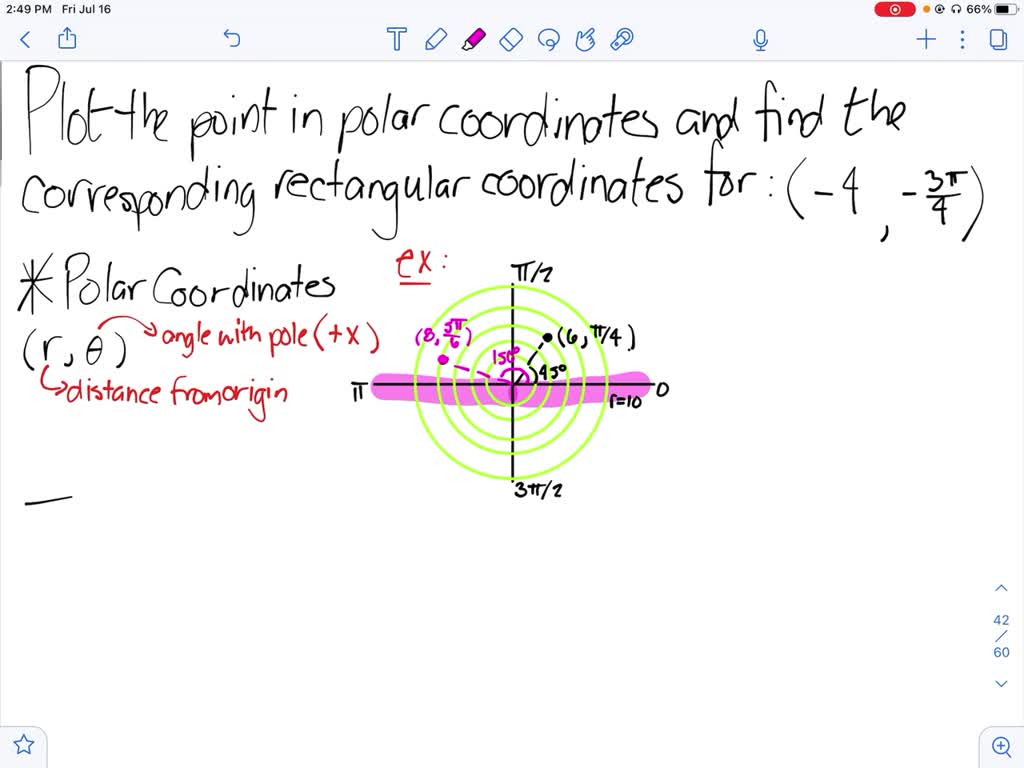 2:49 PM Fri Jul 16 66%
Plot the point in polar coordinates and find the
corresponding rectangular coordinates for: (-4, -3π/4)
* Polar Coordinates
(r, θ) angle with pole (+x)
distance from origin
ex:
π/2
(8, 5π/6)
(6, π/4)
150°
45°
π
0
r=10
3π/2
42
/
60